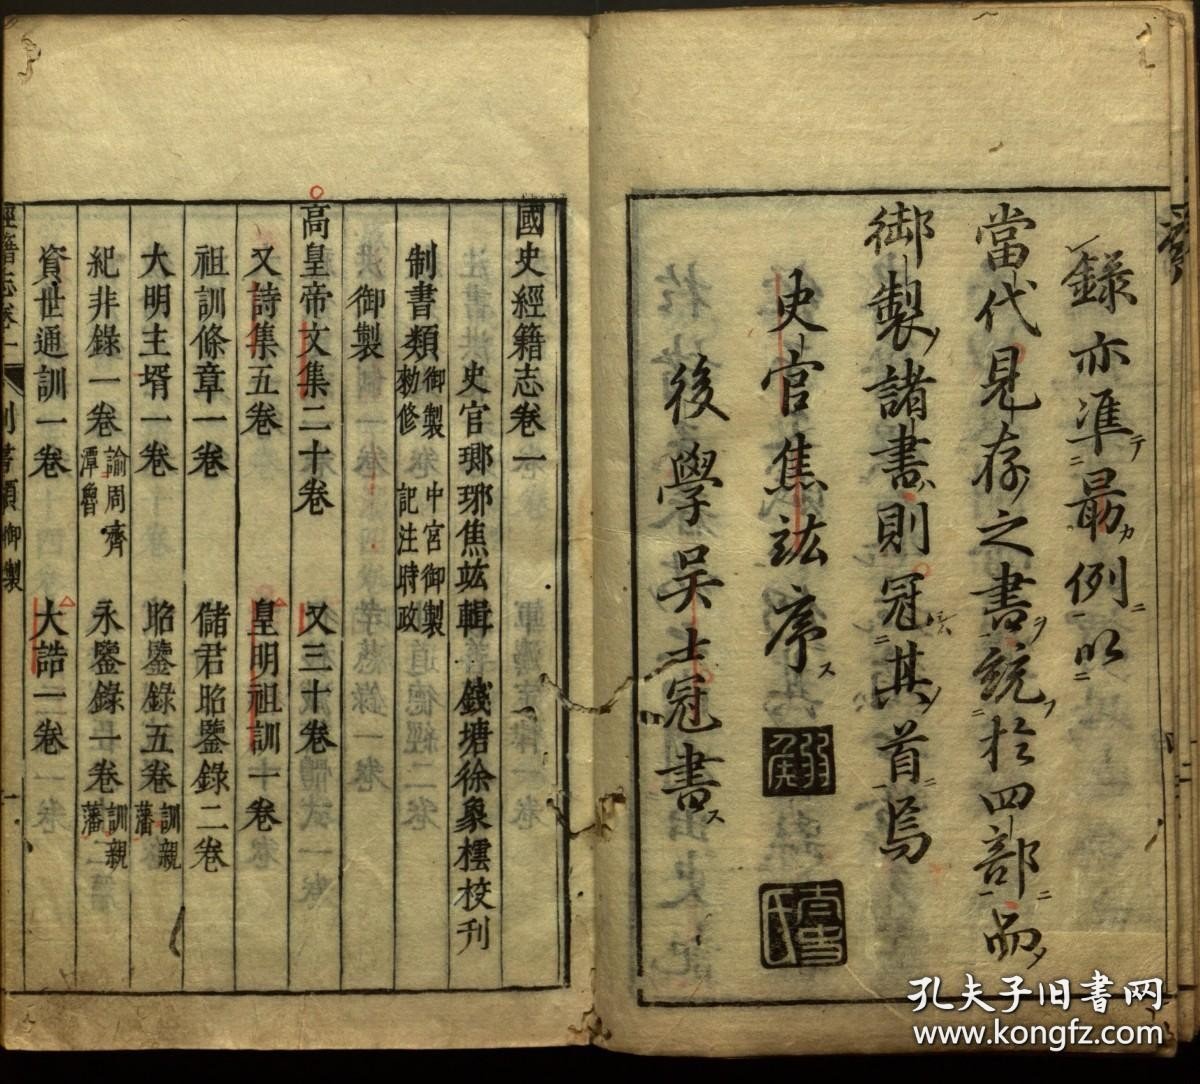 錄亦準最例以
當代見存之書統於四部而
御製諸書則冠其首焉
史官焦竑序
後學吳士冠書
國史經籍志卷一
史官瑯琊焦竑輯 錢塘徐象橒校刊
制書類 御製 中宮御製 勑修 記注時政
御製
高皇帝文集二十卷 又三十卷
又詩集五卷 皇明祖訓一卷
祖訓條章一卷 儲君昭鑒錄二卷
大明主壻一卷 昭鑒錄五卷 訓親藩
紀非錄一卷 諭周齊潭魯 永鑒錄一卷 訓親藩
資世通訓一卷 大誥一卷
經籍志卷一 制書類御製 一
孔夫子旧书网
www.kongfz.com